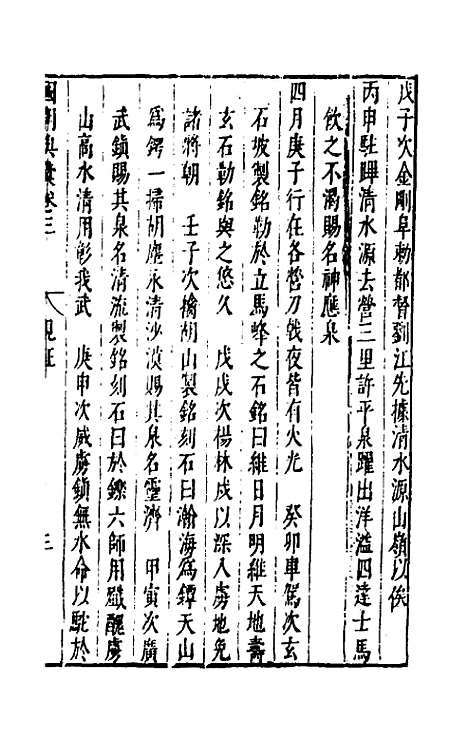 戊子次金剛阜勅都督劉江先據清水源山嶺以俟
丙申駐蹕清水源去營三里許平泉躍出洋溢四達士馬
飲之不渴賜名神應泉
四月庚子行在各營刀戟夜皆有火光　癸卯車駕次玄
石坡製銘勒於立馬峰之石銘曰維日月明維天地壽
玄石勒銘與之悠久　戊戌次楊林戍以深入虜地免
諸將朝　壬子次擒胡山製銘刻石曰瀚海為鐔天山
為鍔一掃胡塵永清沙漠賜其泉名靈濟　甲寅次廣
武鎮賜其泉名清流製銘刻石曰於鑠六師用殲醜虜
山高水清用彰我武　庚申次威虜鎮無水命以駝於
國朝典彙卷三　親征　三